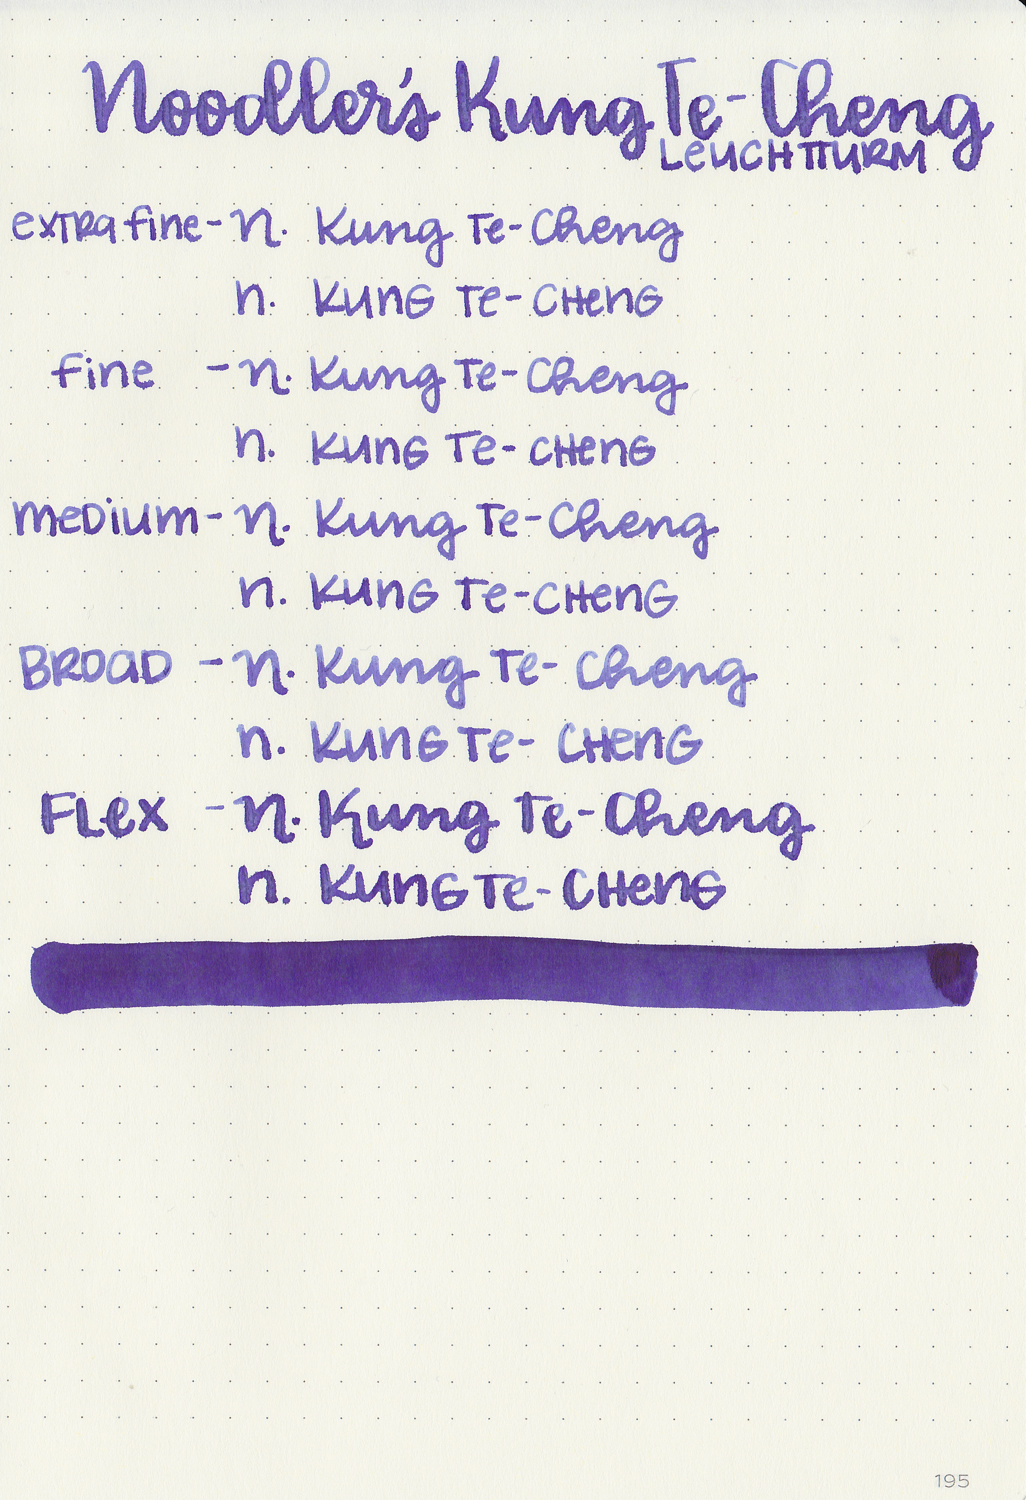 Noodler's Kung Te-Cheng
LEUCHTTURM
extra fine - n. Kung Te-Cheng
n. KUNG Te-CHENG
fine - n. Kung Te-Cheng
n. KUNG Te-CHENG
MEDIUM - n. Kung Te-Cheng
n. KUNG Te-CHENG
BROAD - n. Kung Te-Cheng
n. KUNG Te-CHENG
FLEX - n. Kung Te-Cheng
n. KUNG Te-CHENG
195